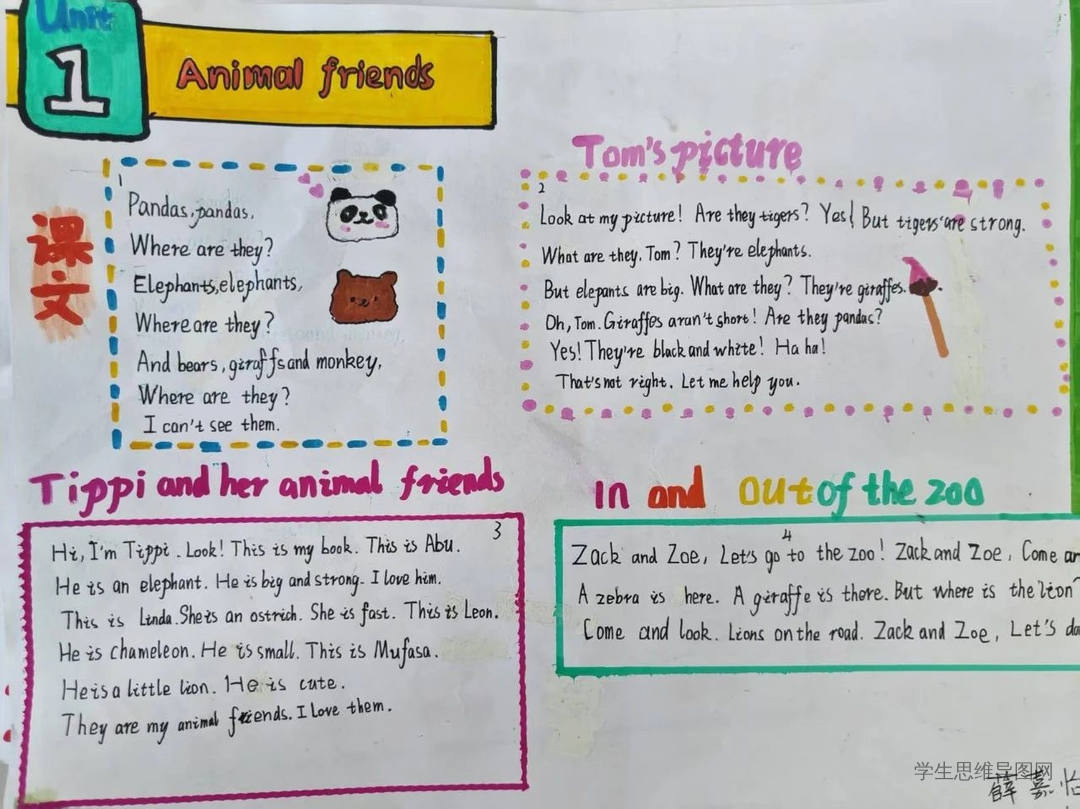 Unit
1
Animal friends
课文
1
Pandas, pandas,
Where are they?
Elephants, elephants,
Where are they?
And bears, giraffs and monkey,
Where are they?
I can't see them.
Tom's picture
2
Look at my picture! Are they tigers? Yes! But tigers are strong.
What are they, Tom? They're elephants.
But elepants are big. What are they? They're giraffes.
Oh, Tom. Giraffes aran't short! Are they pandas?
Yes! They're black and white! Ha ha!
That's not right. Let me help you.
Tippi and her animal friends
3
Hi, I'm Tippi. Look! This is my book. This is Abu.
He is an elephant. He is big and strong. I love him.
This is Linda. She is an ostrich. She is fast. This is Leon.
He is chameleon. He is small. This is Mufasa.
He is a little lion. He is cute.
They are my animal friends. I Love them.
In and out of the zoo
4
Zack and Zoe, Let's go to the zoo! Zack and Zoe, Come
A zebra is here. A giraffe is there. But where is the lion?
Come and look. Lions on the road. Zack and Zoe, Let's
学生思维导图网
薛嘉怡